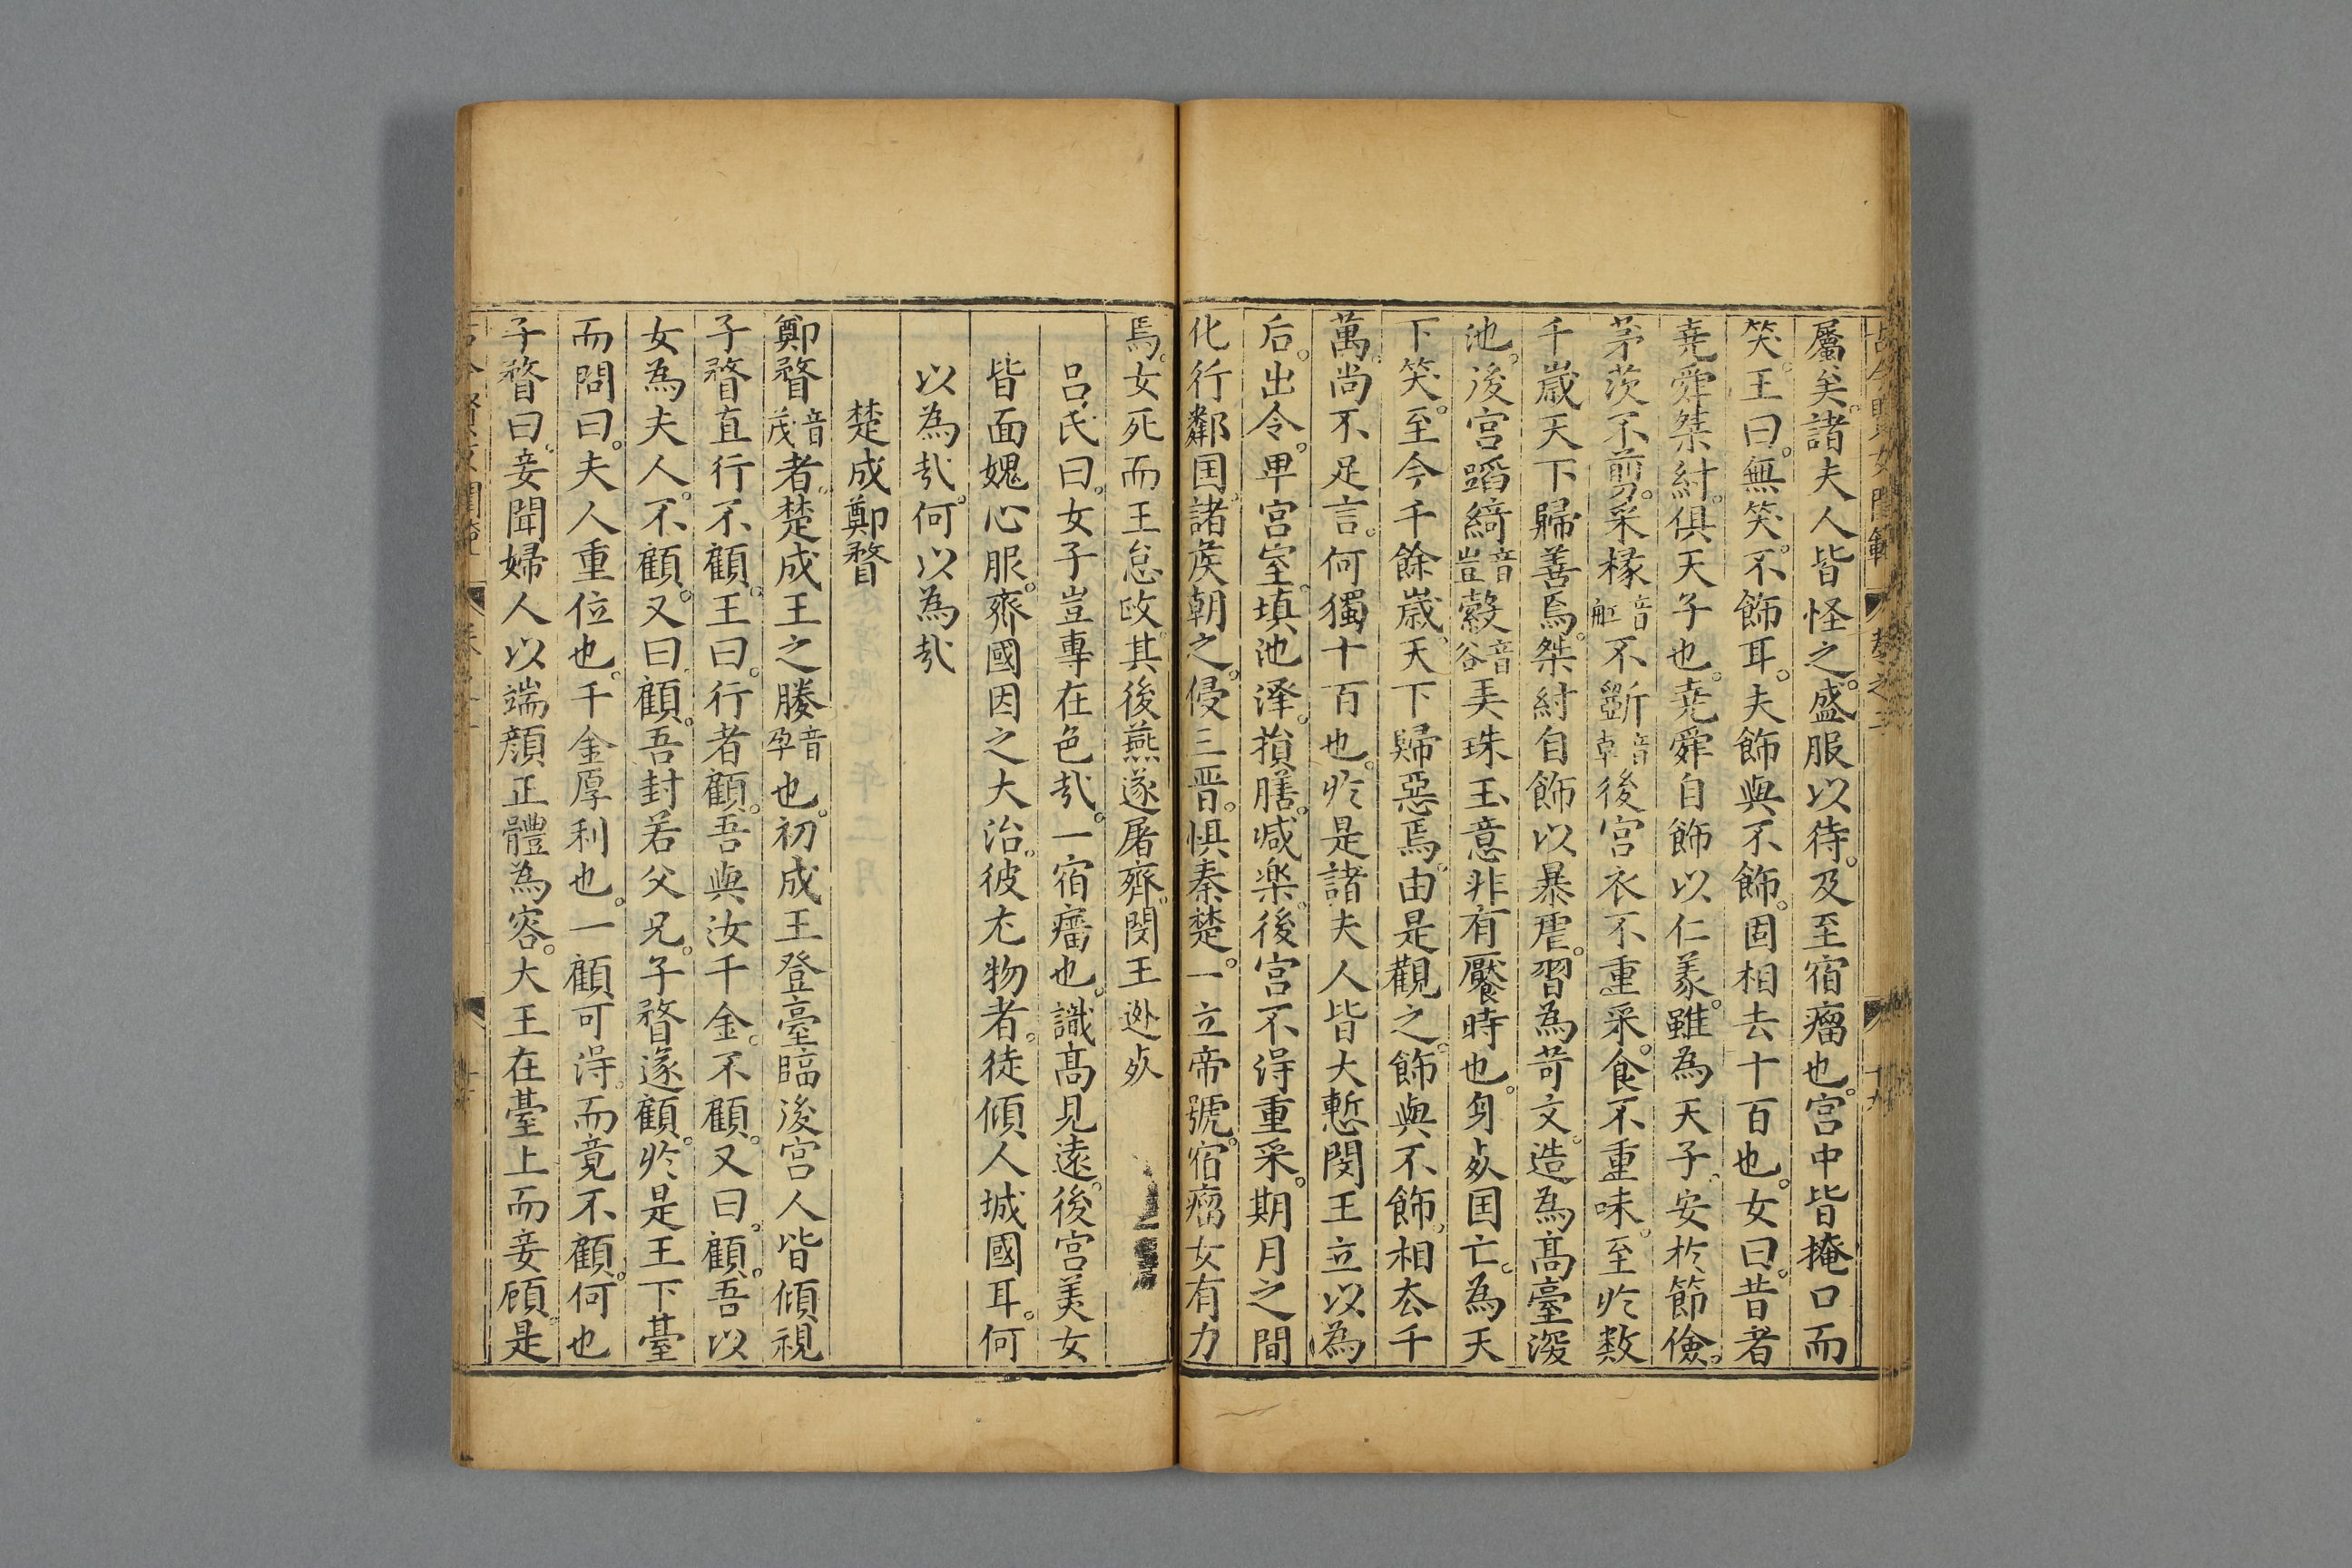 屬矣。諸夫人皆怪之。盛服以待。及至宿瘤也。宮中皆掩口而
笑。王曰。無笑。不飾耳。夫飾與不飾。固相去十百也。女曰。昔者
堯舜桀紂。俱天子也。堯舜自飾以仁義。雖為天子。安於節儉。
茅茨不剪。采椽音舡不斵音卓後宮衣不重采。食不重味。至於数
千歲天下歸善焉。桀紂自飾以暴虐。習為苛文。造為高臺深
池。後宮蹈綺音豈縠音谷美珠玉意非有饜時也。身死国亡。為天
下笑。至今千餘歲。天下歸惡焉。由是觀之。飾與不飾。相去千
萬。尚不足言。何獨十百也。於是諸夫人皆大慙閔王立以為
后。出令。卑宮室。填池澤。損膳。减楽。後宮不得重采。期月之間
化行鄰国。諸侯朝之。侵三晋。惧秦楚。一立帝號。宿瘤女有力
焉。女死而王怠政。其後燕遂屠齊。閔王逊死
呂氏曰。女子豈專在色哉。一宿瘤也。識高見遠。後宮美女
皆面媿心服。齊國因之大治。彼尤物者。徒傾人城國耳。何
以為哉。何以為哉
楚成鄭瞀
鄭瞀音茂者。楚成王之媵音孕也。初成王登臺臨後宮人皆傾視
子瞀直行不顧。王曰。行者顧。吾與汝千金。不顧。又曰。顧。吾以
女為夫人。不顧。又曰。顧。吾封若父兄。子瞀遂顧。於是王下臺
而問曰。夫人重位也。千金厚利也。一顧可得。而竟不顧。何也
子瞀曰。妾聞婦人以端顔正體為容。大王在臺上而妾顧。是